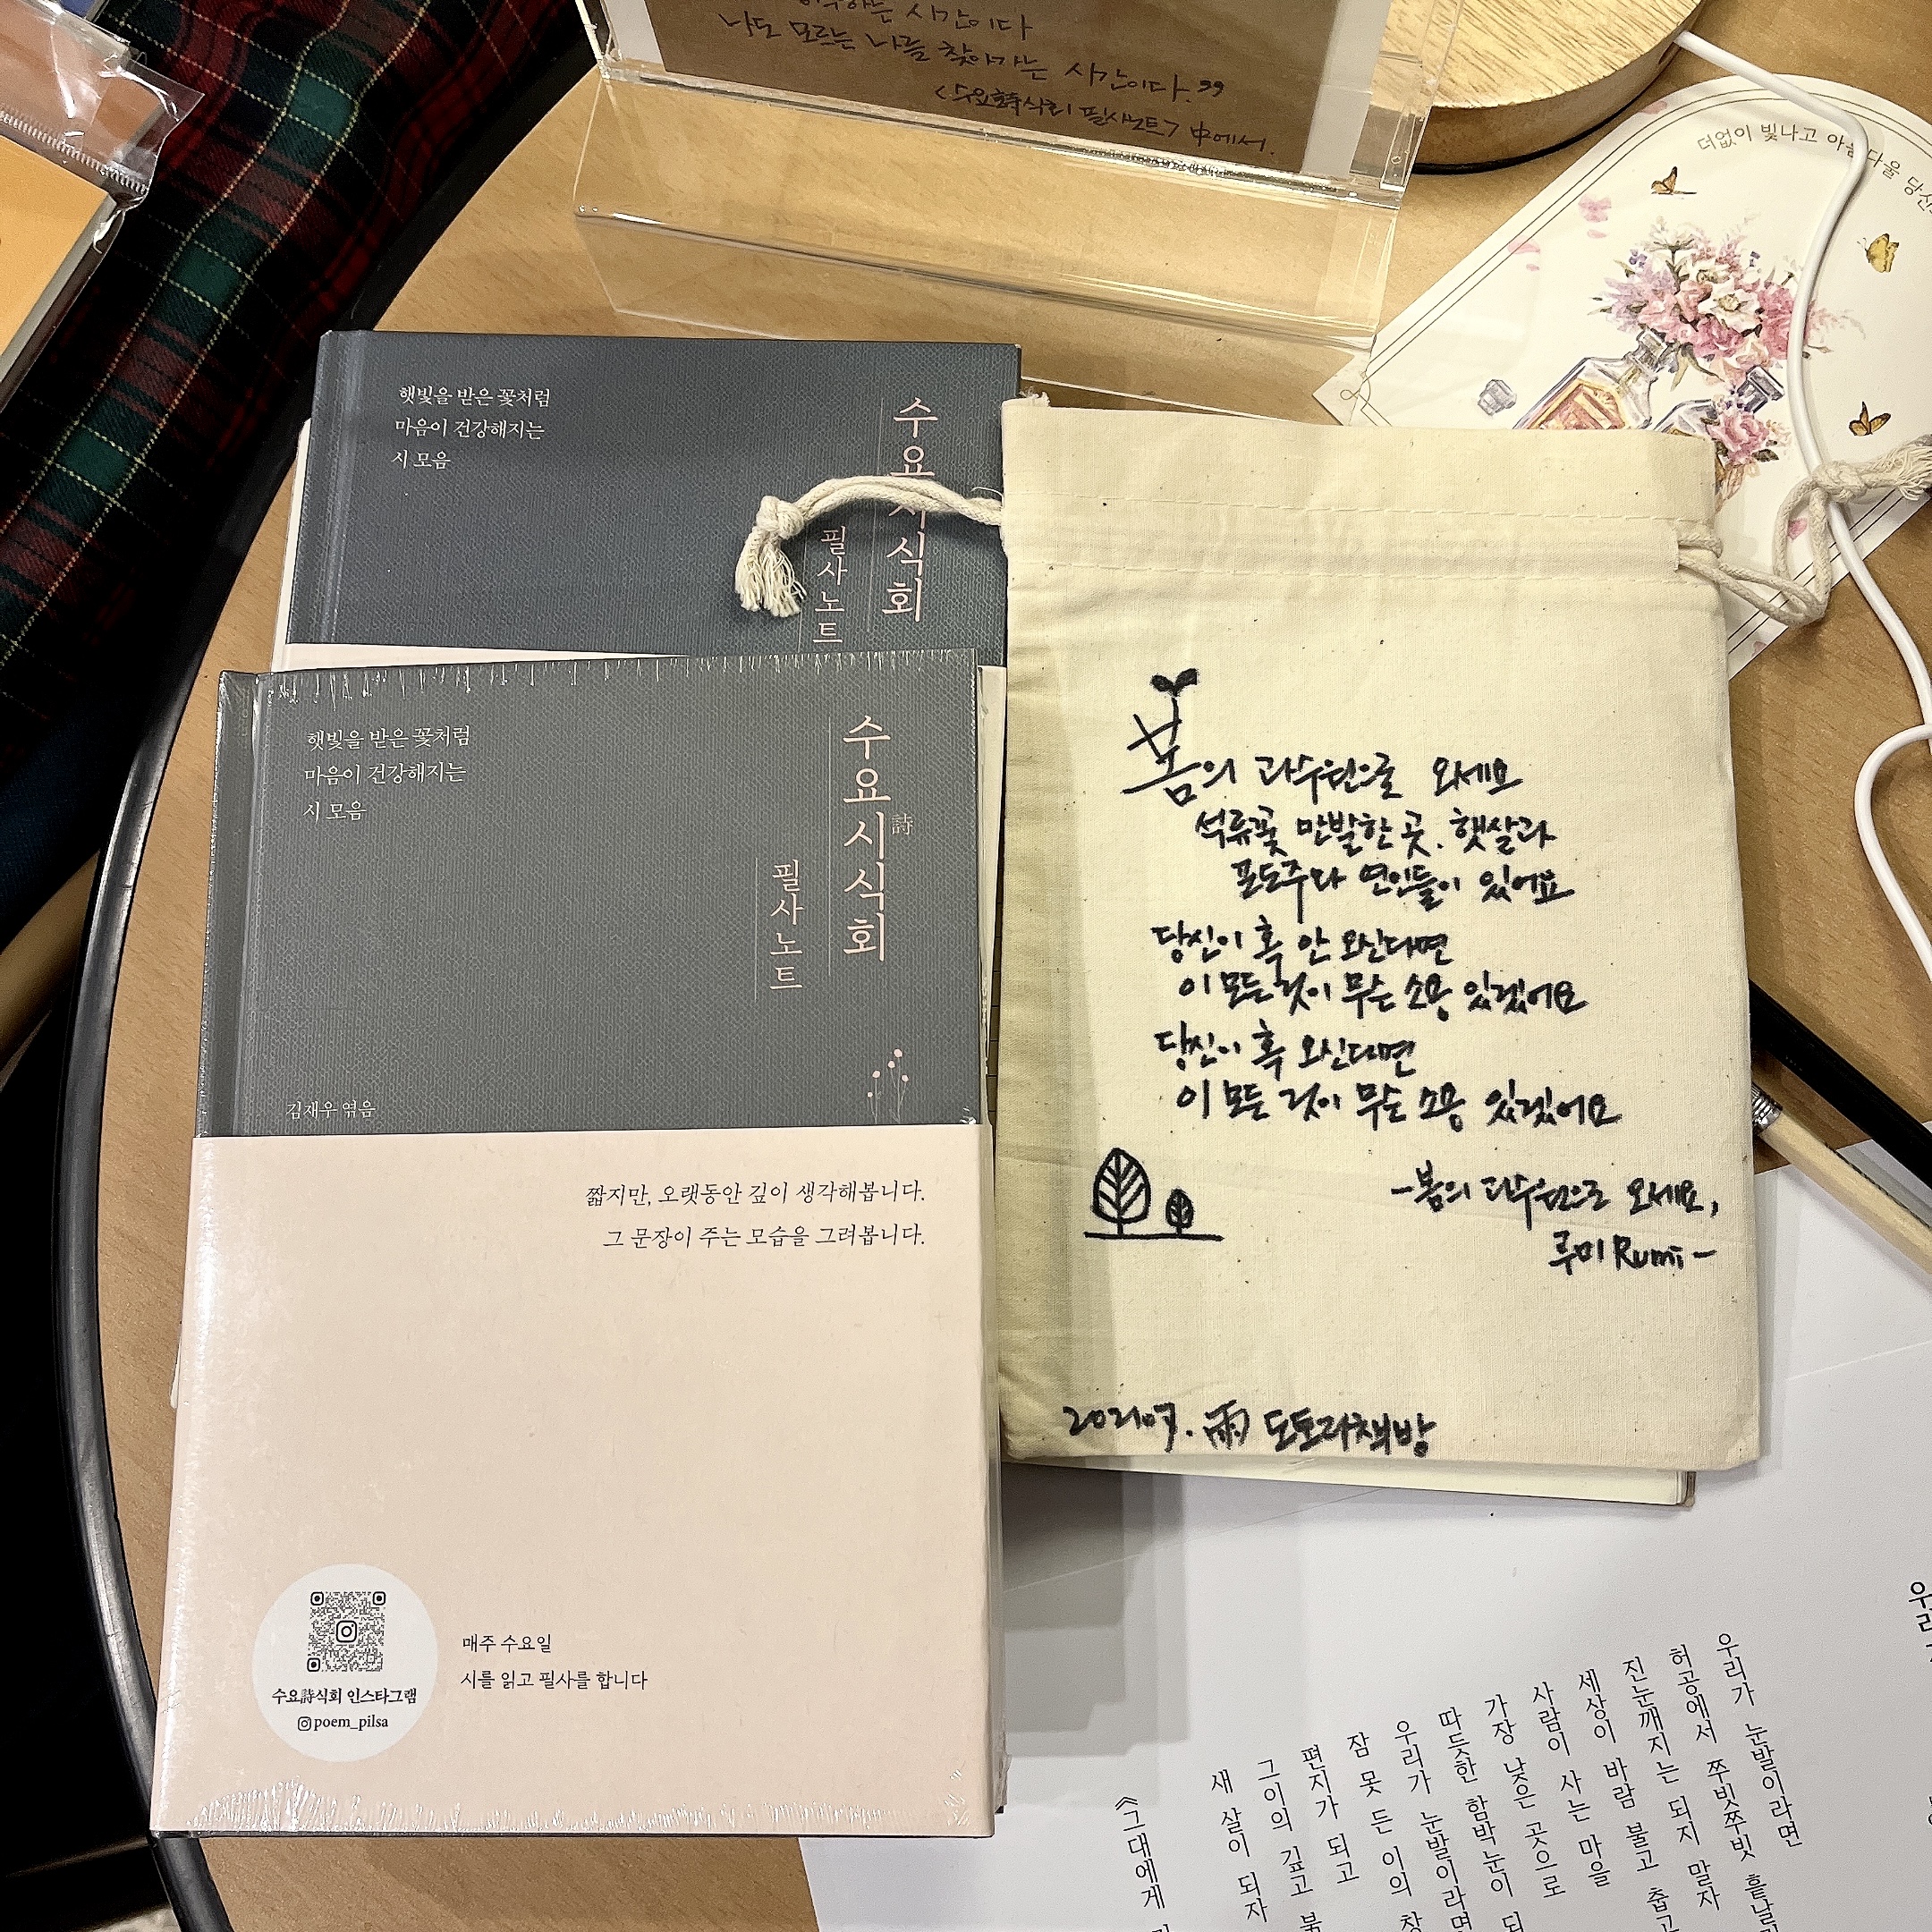 시간이다
나도 모르는 나를 찾아가는 시간이다.”
<수요詩식회 필사노트> 中에서.
더없이 빛나고 아름다울 당신
햇빛을 받은 꽃처럼
마음이 건강해지는
시 모음
수요시식회
필사노트
햇빛을 받은 꽃처럼
마음이 건강해지는
시 모음
수요시식회
詩
필사노트
김재우 엮음
짧지만, 오랫동안 깊이 생각해봅니다.
그 문장이 주는 모습을 그려봅니다.
매주 수요일
시를 읽고 필사를 합니다
수요詩식회 인스타그램
poem_pilsa
봄의 과수원으로 오세요
석류꽃 만발한 곳. 햇살과
포도주와 연인들이 있어요
당신이 혹 안 오신다면
이 모든 것이 무슨 소용 있겠어요
당신이 혹 오신다면
이 모든 것이 무슨 소용 있겠어요
-봄의 과수원으로 오세요,
루미 Rumi-
雨 도토리책방
우리가 눈발이라면
허공에서 쭈빗쭈빗 흩날
진눈깨지는 되지 말자
세상이 바람 불고 춥고
사람이 사는 마을
가장 낮은 곳으로
따뜻한 함박눈이 되
우리가 눈발이라면
잠 못 든 이의 창
편지가 되고
그이의 깊고 붉
새 살이 되자
《그대에게